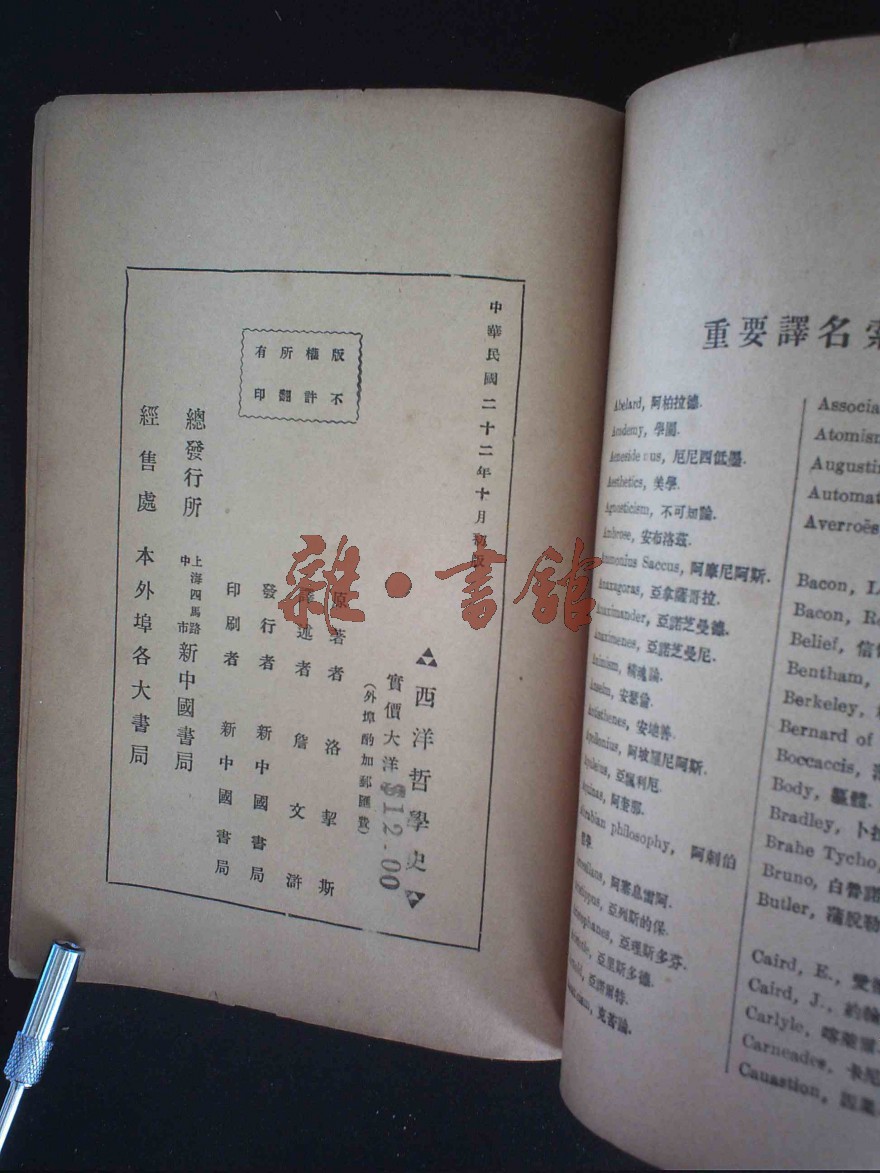 中華民國二十二年十月初版
西洋哲學史
實價大洋$12.00
(外埠酌加郵匯費)
原著者 洛挈斯
譯述者 詹文滸
發行者 新中國書局
印刷者 新中國書局
版權所有
不許翻印
總發行所 上海四馬路中市 新中國書局
經售處 本外埠各大書局
雜·書館
重要譯名索
Abelard, 阿柏拉德.
Academy, 學園.
Aenesidemus, 厄尼西低墨.
Aesthetics, 美學.
Agnosticism, 不可知論.
Ambrose, 安布洛茲.
Ammonius Saccus, 阿摩尼阿斯.
Anaxagoras, 亞拿薩哥拉.
Anaximander, 亞諾芝曼德.
Anaximenes, 亞諾芝曼尼.
Animism, 精魂論.
Anselm, 安瑟倫.
Antisthenes, 安地善.
Apollonius, 阿坡羅尼阿斯.
Apuleius, 亞佩利厄.
Aquinas, 阿奎那.
Arabian philosophy, 阿剌伯
哲學.
阿塞息雷阿.
亞列斯的保.
Aristophanes, 亞理斯多芬.
Aristotle, 亞里斯多德.
Arnold, 亞諾爾特.
克蓄論.
Associa
Atomism
Augustin
Automat
Averroës
Bacon,
Bacon, Ro
Belief, 信
Bentham,
Berkeley,
Bernard of
Boccaccis,
Body, 軀體.
Bradley, 卜拉
Brahe Tycho,
Bruno, 白魯諾
Butler, 蒲脫勒
Caird, E.,
Caird, J., 約翰
Carlyle, 喀萊爾
Carneades, 卡尼
Causation, 因果